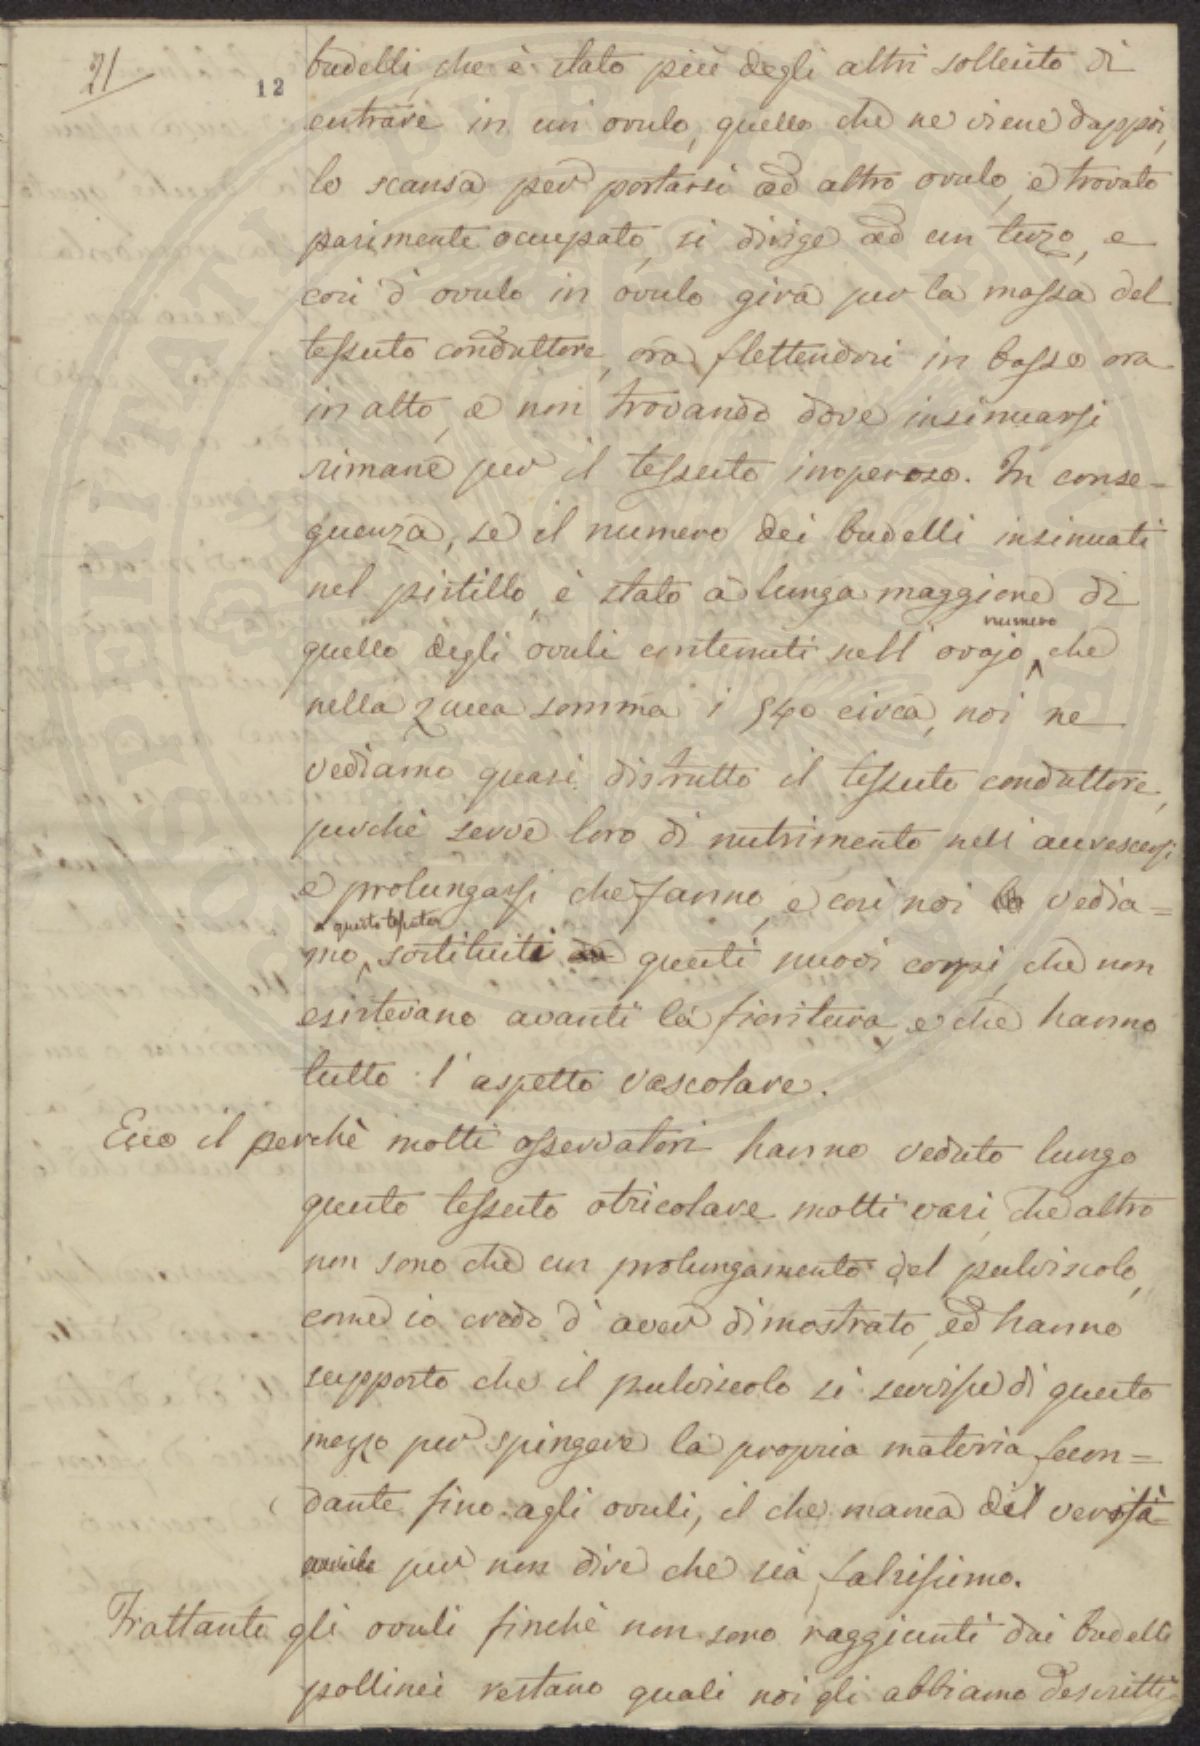 21
12
budelli, che è stato più degli altri sollecito di
entrare in un ovulo, quello che ne viene dappoi,
lo scansa per portarsi ad altro ovulo, e trovato
parimente occupato, si dirige ad un terzo, e
così d' ovulo in ovulo gira per la massa del
tessuto conduttore, ora flettendosi in basso ora
in alto, e non trovando dove insinuarsi
rimane per il tessuto inoperoso. In conse=
guenza, se il numero dei budelli insinuati
nel pistillo, è stato a lunga maggiore di
numero
quello degli ovuli contenuti nell' ovajo, che
nella zucca somma i 540 circa, noi ne
vediamo quasi distrutto il tessuto conduttore,
perchè serve loro di nutrimento nell' accrescersi
e prolungarsi che fanno, e così noi lo vedia=
a questo tessuto
mo, sostituiti questi nuovi corpi, che non
esistevano avanti la fioritura, e che hanno
tutto l' aspetto vascolare.
Ecco il perchè molti osservatori hanno veduto lungo
questo tessuto otricolare molti vasi, che altro
non sono che un prolungamento del pulviscolo,
come io credo d' aver dimostrato, ed hanno
supposto che il pulviscolo si servisse di questo
mezzo per spingere la propria materia fecon=
dante fino agli ovuli, il che manca del
per non dire che sia falsissimo.
Frattanto gli ovuli finchè non sono raggiunti dai budelli
pollinei restano quali noi gli abbiamo descritti